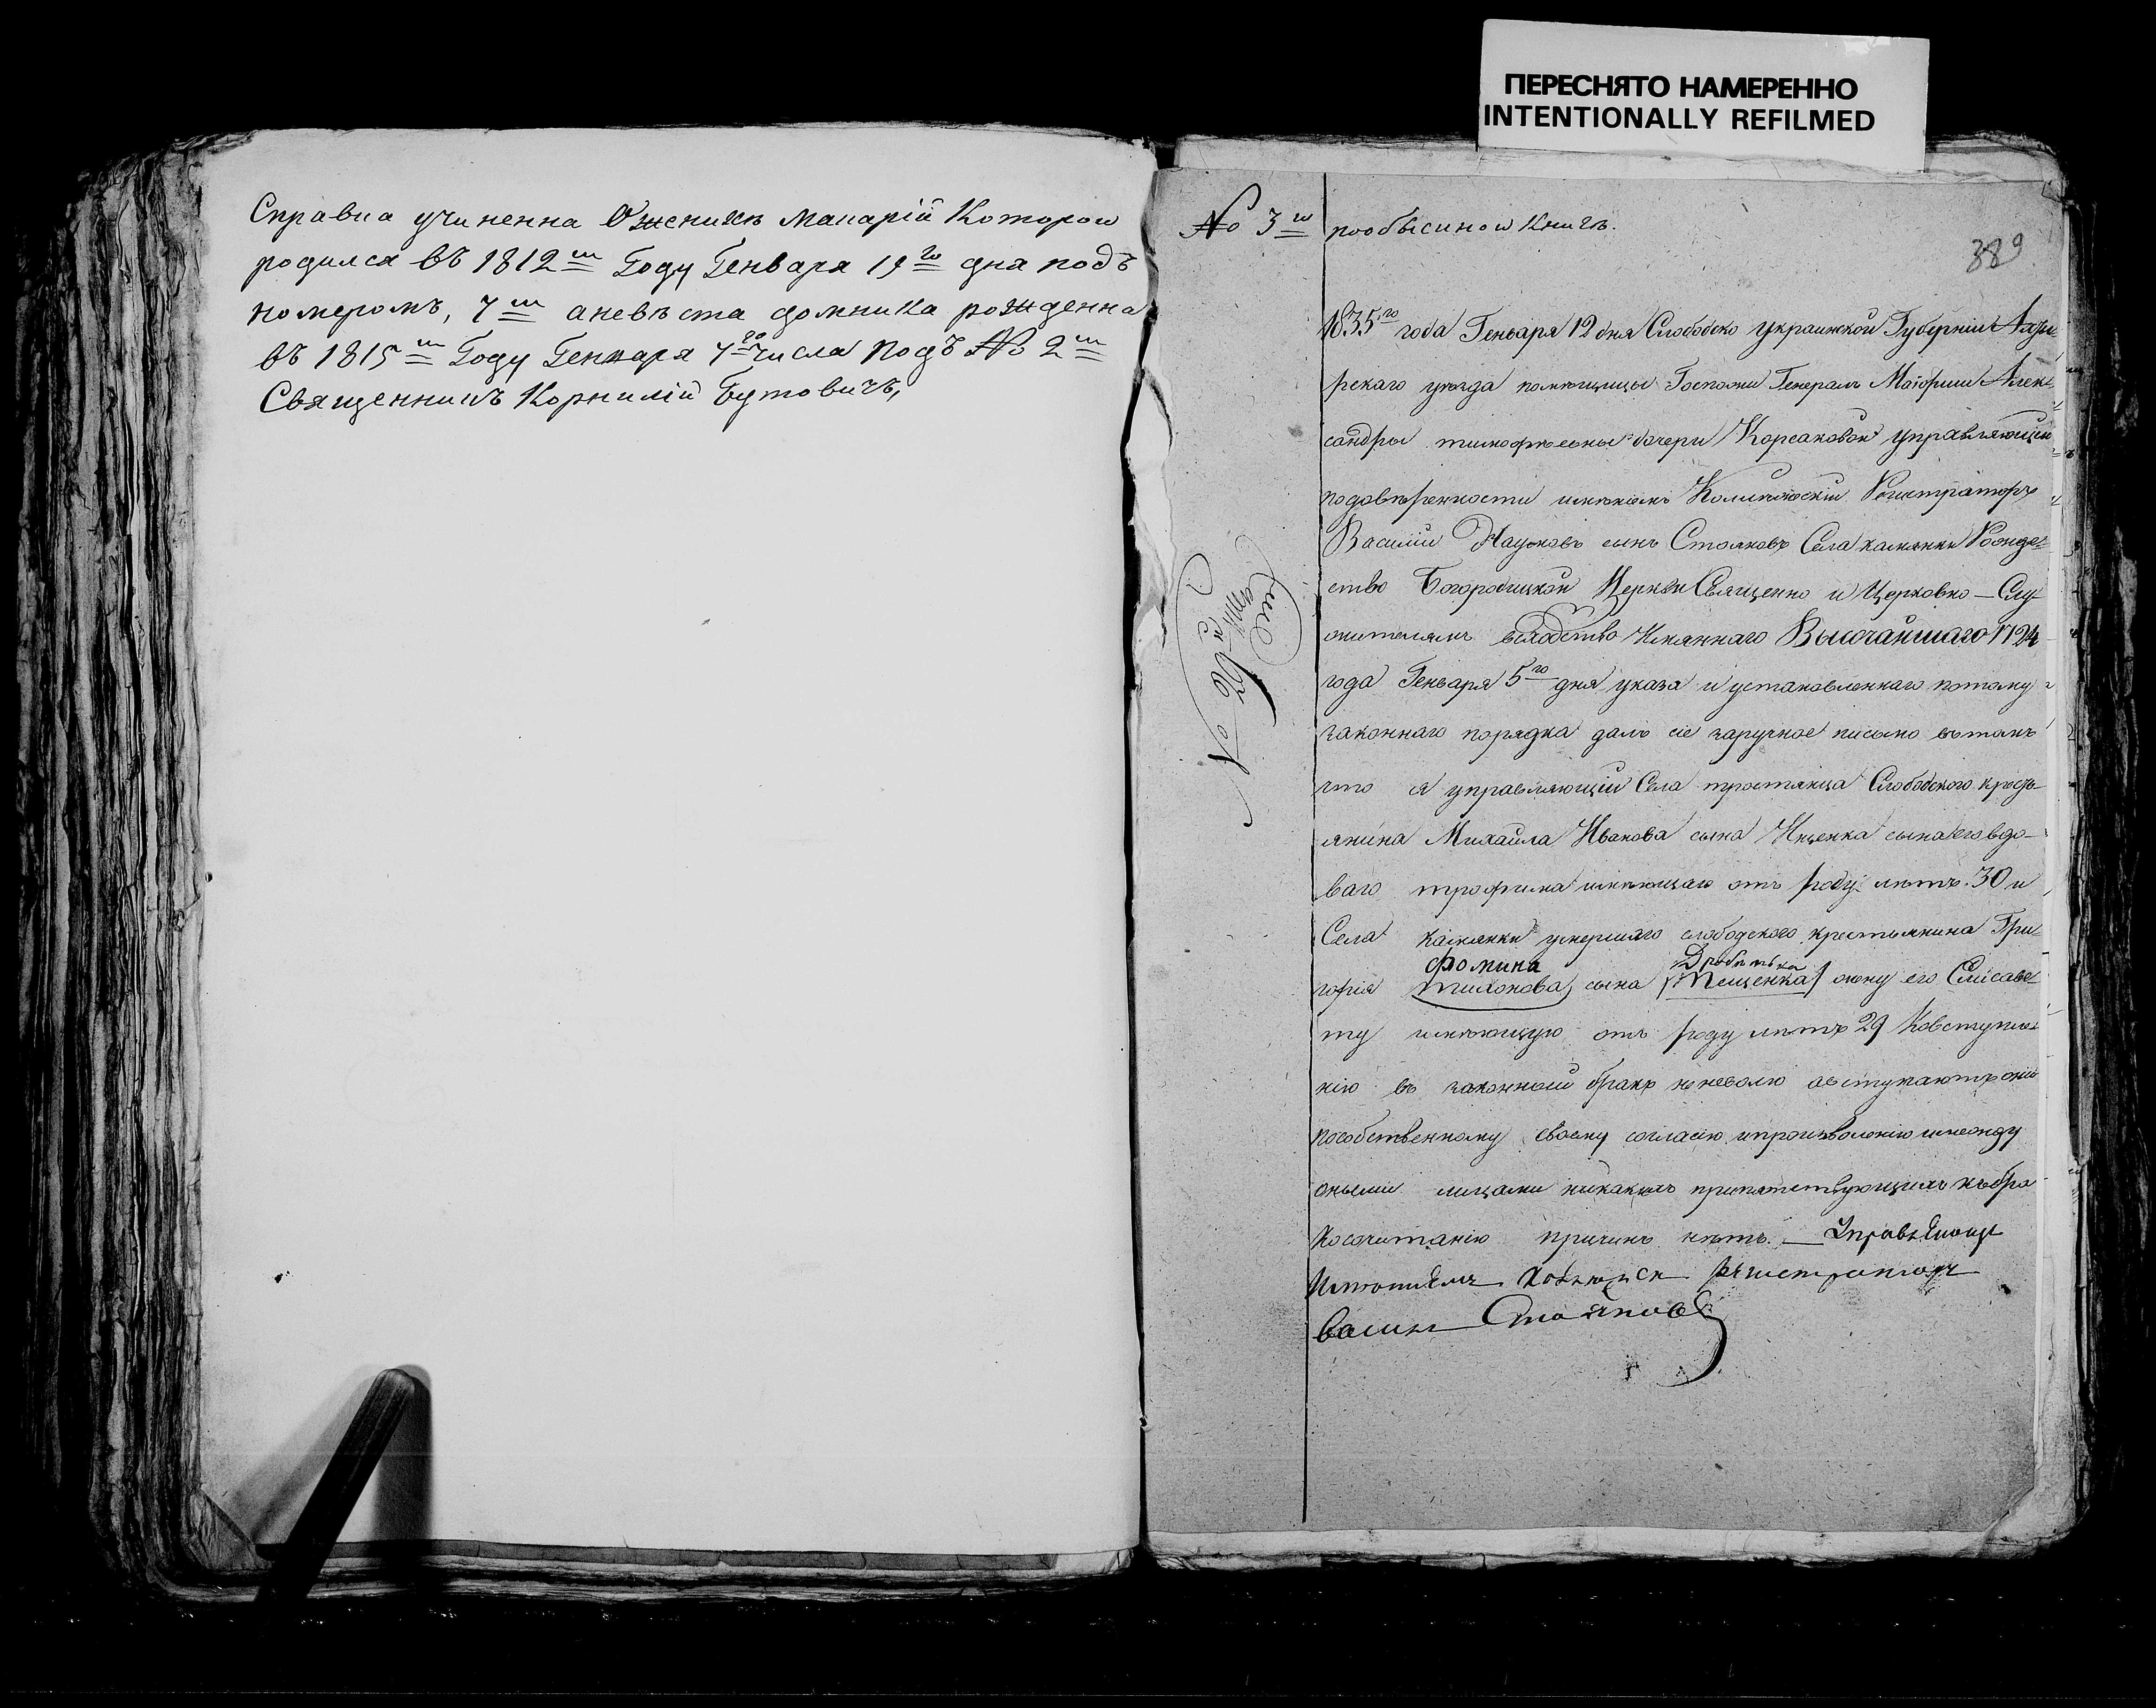 ПЕРЕСНЯТО НАМЕРЕННО
INTENTIONALLY REFILMED
Справка учиненна Ожених Макарій Которой
родился въ 1812м Году Генваря 19го дня подъ
номеромъ, 7м аневѣста домника рожденна
въ 1815м Году Генваря 4го числа подъ № 2м
Священникъ Корнилій Бутовичъ,
№ 3й пообысиной Книгѣ.
389
1835го года Генваря 12 дня Слободско украинской Губерніи Ахты
рскаго уѣзда помѣщицы Госпожи Генералъ Маіорши Алек
сандры тимофѣевны дочери Корсаковой управляющій
подовѣренности имѣніемъ Колежскій Регистраторъ
Василій Наумовъ сынъ Стояновъ Села каменки Рожде
ство Богородицкой Церкви Священно и Церковно-Слу
жителямъ Имяннаго Высочайшаго 1724
года Генваря 5го дня указа и установленнаго потому
законнаго порядка далъ сіе заручное письмо втомъ
что я управляющій Села тростянца Слободского кресть
янина Михайла Иванова сына Ищенка сына его вдо
ваго трофима имѣющаго отъ роду лѣтъ 30 и
Села каменки умершаго слободского крестьянина Гри
Фомина
горія тихонова сына Тещенка жену его Елисаве
ту имѣющую отъ роду лѣтъ 29 Ковступле
нію въ законный бракъ неневолю авступаютъ они
пособственному своему согласію ипроизволенію имежду
оными лицами никакихъ препятствующихъ кьбра
косочитанію причинъ нѣтъ. — Управляющи
имѣниемъ регистраторъ
васили Стояновъ